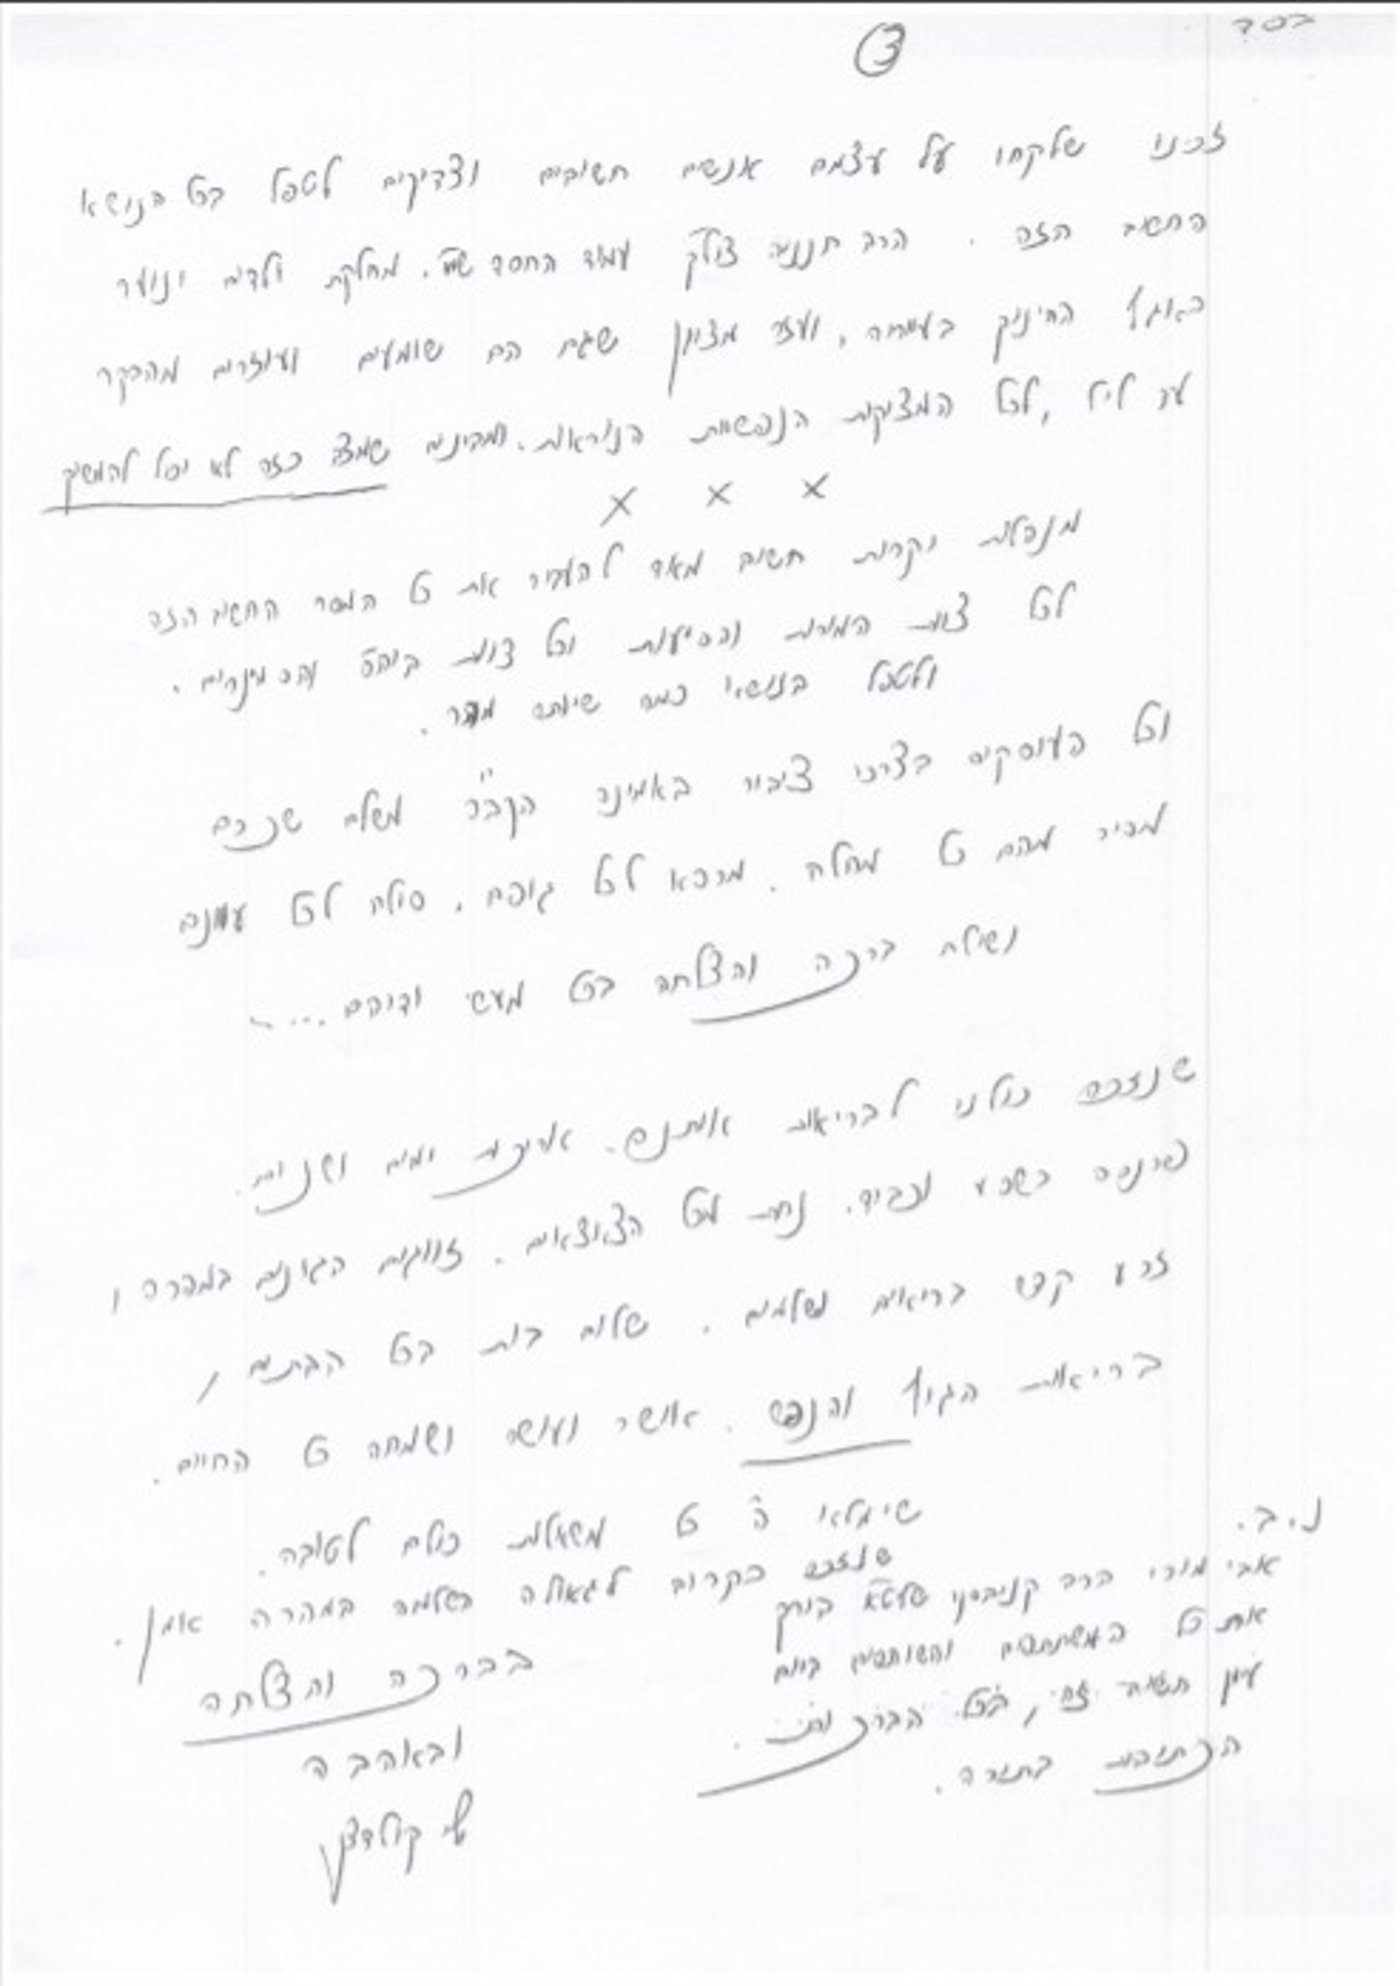 בסד
3
זכינו שלקחו על עצמם אנשים חשובים וצדיקים לטפל בכל הנושא
החשוב הזה . הרב חנניה צולק עמוד החסד שליט"א. מחלקת ילדים ונוער
באגף החינוך בעיריה , ועזר מציון שגם הם שומעים ועוזרים מהבקר
עד ליל , לכל המצוקות הנפשיות הנוראות. ומבינים שמצב כזה לא יכל להמשיך
X X X
מנהלות יקרות חשוב מאד להעביר את כל המסר החשוב הזה
לכל צוות המורות והסייעות וכל צוות ביה"ס והסמינרים .
ולטפל בנושא כמה שיותר מהר .
וכל העוסקים בצרכי ציבור באמונה הקב"ה ישלם שכרם
ויסיר מהם כל מחלה . וירפא לכל גופם . ויסלח לכל עוונם
וישלח ברכה והצלחה בכל מעשי ידיהם ....
שנזכה כולנו לבריאות איתנה. אריכות ימים ושנים .
פרנסה בשפע וכבוד . נחת מכל הצאצאים . זווגים הגונים במהרה ,
זרע קדש בריאים ושלמים . שלום בית בכל הבתים ,
בריאות הגוף והנפש . אושר ועושר ושמחה כל החיים .
שימלא ה' כל משאלות כולם לטובה .
שנזכה בקרוב לגאולה השלמה במהרה אמן .
בברכה והצלחה
ובאהבה
קולדצקי
נ.ב.
אבי מורי הרב קניבסקי שליט"א בירך
את כל המשתתפים והשותפים ביום
עיון חשוב זה , בכל הברכות .
הכתובות בתורה .